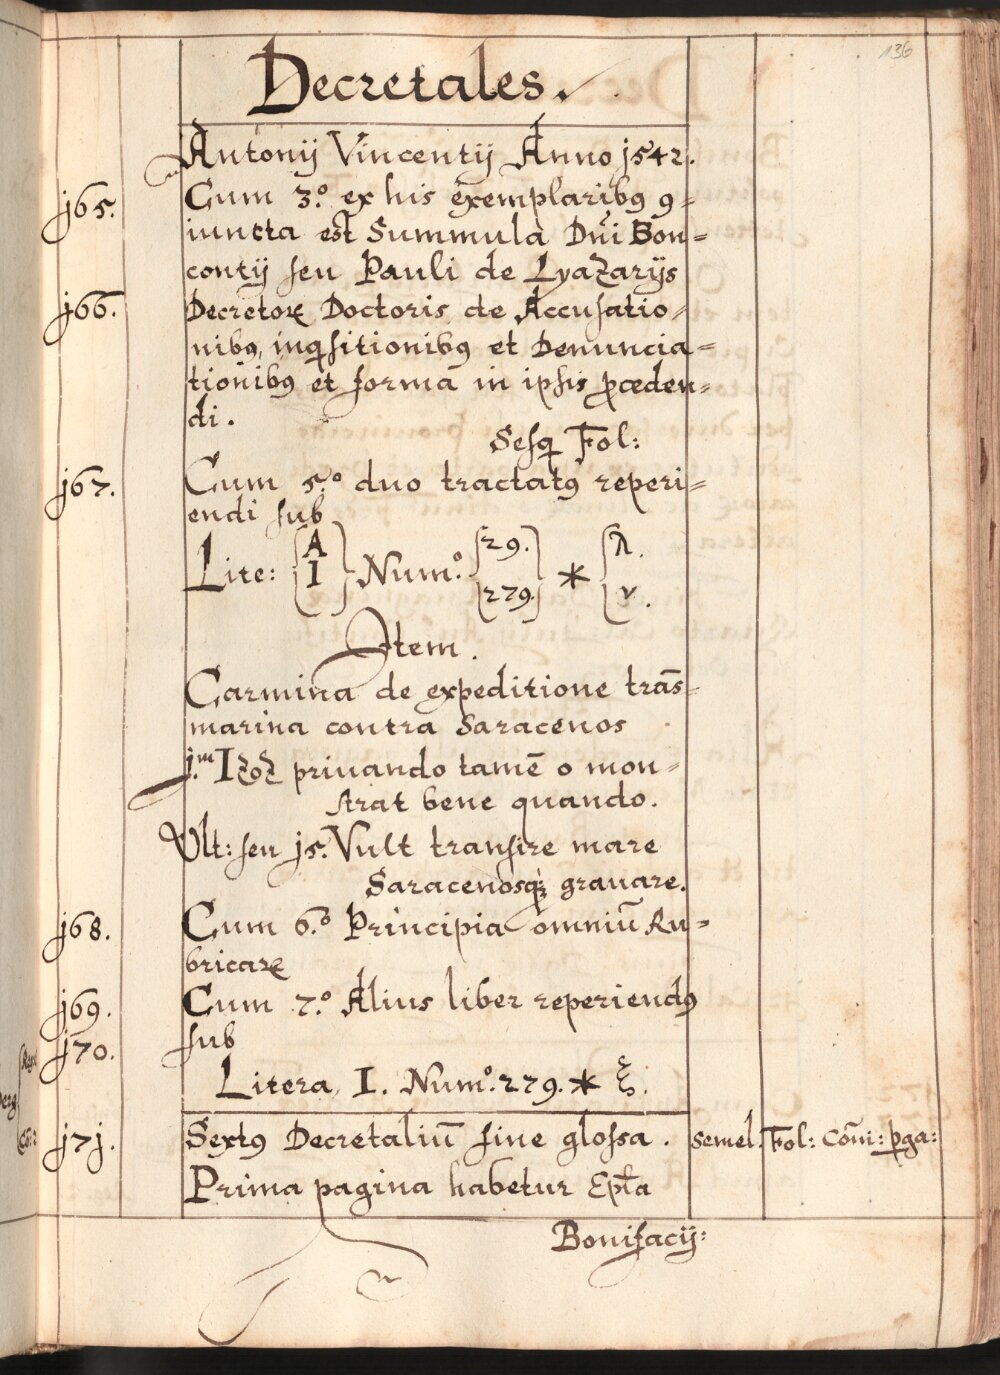 136
Decretales.
Antonij Vincentij Anno j542.
j65. Cum 3.º ex his exemplaribꝰ ꝯ=
iuncta est Summula Dñi Bon=
contij seu Pauli de Lyazarijs
j66. Decretoꝝ Doctoris de Accusatio=
nibꝰ, inqsitionibꝰ et Denuncia=
tionibꝰ et formā in ipsis ꝓceden=
di.
Sesq Fol:
j67. Cum 5.º duo tractatꝰ reperi=
endi sub
Lite: A I Num.º 29. 279. * λ. ν.
Item.
Carmina de expeditione trās=
marina contra Saracenos
j.m priuando tamē o mon=
strat bene quando.
Vlt: seu j5. Vult transire mare
Saracenosq; grauare.
j68. Cum 6.º Principia omniū Ru=
bricaꝝ
j69. Cum 7.º Alius liber reperiendꝰ
j70. sub
Litera, I. Num.º 279. * ξ.
j7j. Sextꝰ Decretaliū sine glossa. Semel. Fol: Cōi: ꝑga:
Prima pagina habetur Epła
Bonifacij: